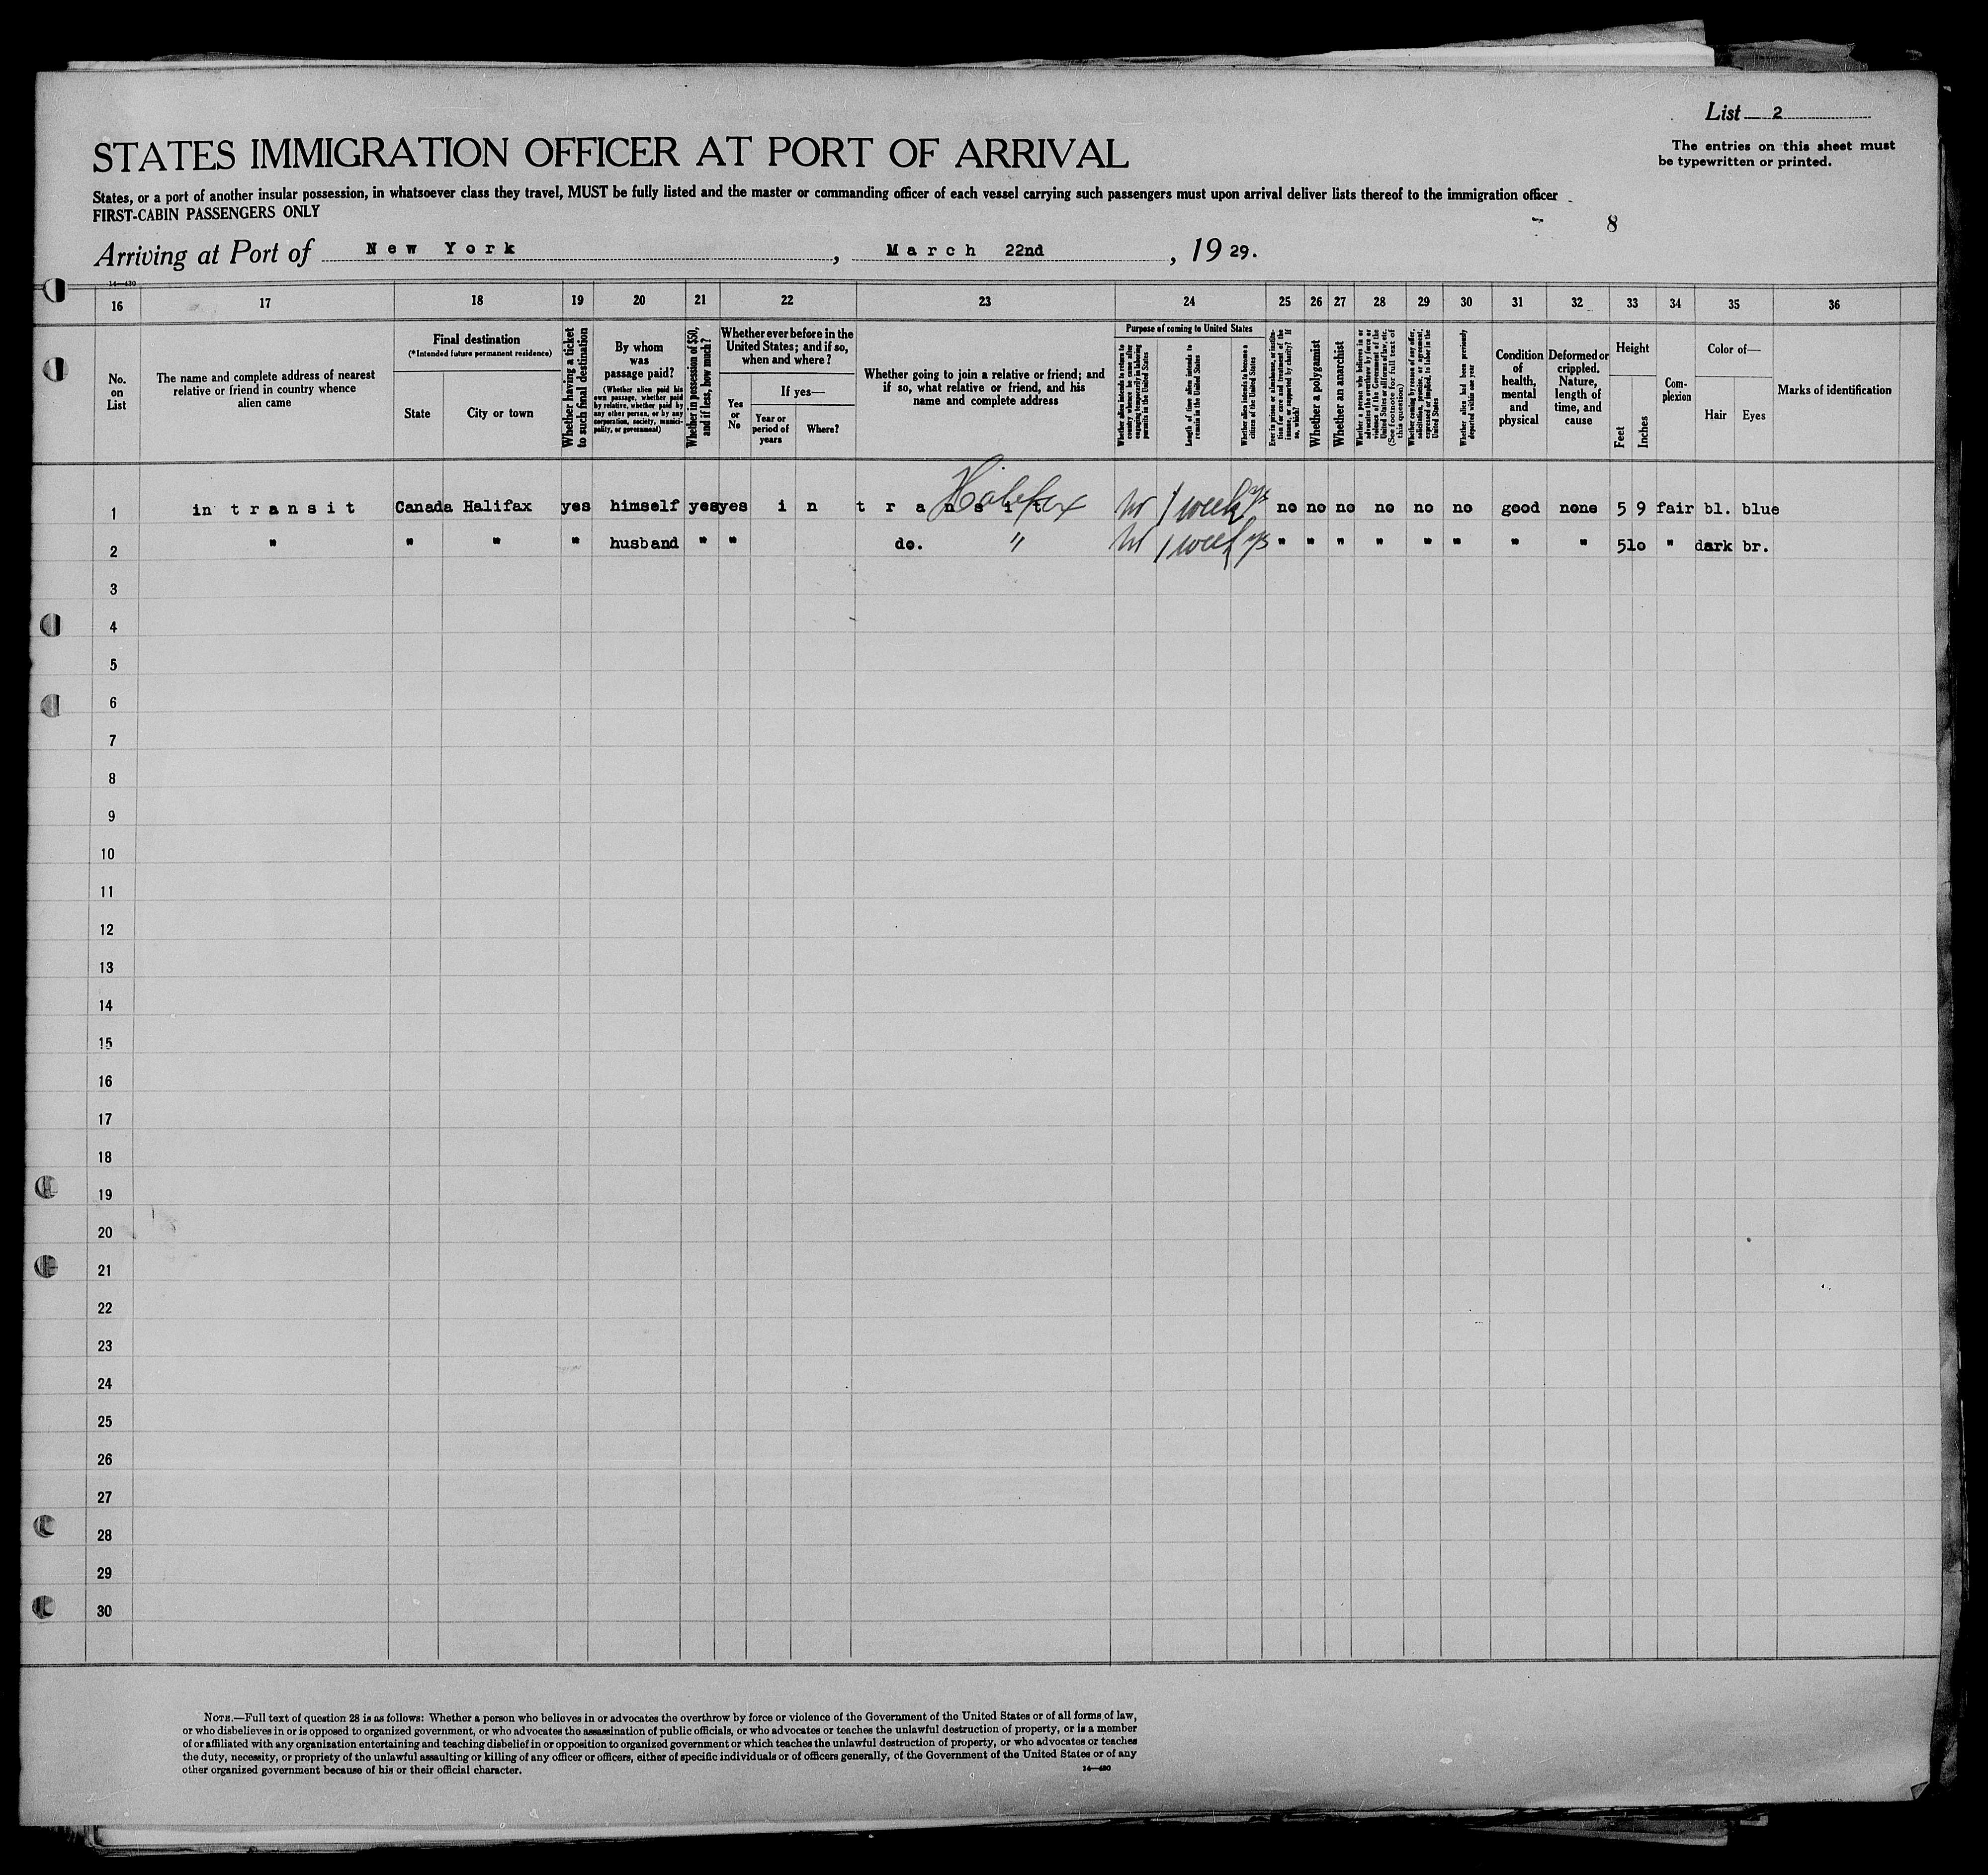 List 2
STATES IMMIGRATION OFFICER AT PORT OF ARRIVAL
The entries on this sheet must
be typewritten or printed.
States, or a port of another insular possession, in whatsoever class they travel, MUST be fully listed and the master or commanding officer of each vessel carrying such passengers must upon arrival deliver lists thereof to the immigration officer
FIRST-CABIN PASSENGERS ONLY
8
Arriving at Port of New York, March 22nd, 1929.
14—430
16 17 18 19 20 21 22 23 24 25 26 27 28 29 30 31 32 33 34 35 36
No.
on
List
The name and complete address of nearest
relative or friend in country whence
alien came
Final destination
(*Intended future permanent residence)
State
City or town
Whether having a ticket
to such final destination
By whom
was
passage paid?
(Whether alien paid his
own passage, whether paid
by relative, whether paid by
any other person, or by any
corporation, society, munici-
pality, or government)
Whether in possession of $50,
and if less, how much?
Whether ever before in the
United States; and if so,
when and where?
Yes
or
No
If yes—
Year or
period of
years
Where?
Whether going to join a relative or friend; and
if so, what relative or friend, and his
name and complete address
Purpose of coming to United States
Whether alien intends to return to
country whence he came after
engaging temporarily in laboring
pursuits in the United States
Length of time alien intends to
remain in the United States
Whether alien intends to become a
citizen of the United States
Ever in prison or almshouse, or institu-
tion for care and treatment of the
insane, or supported by charity? If
so, which?
Whether a polygamist
Whether an anarchist
Whether a person who believes in or
advocates the overthrow by force or
violence of the Government of the
United States or all forms of law, etc.
(See footnote for full text of
this question)
Whether coming by reason of any offer,
solicitation, promise, or agreement,
expressed or implied, to labor in the
United States
Whether alien had been previously
deported within one year
Condition
of
health,
mental
and
physical
Deformed or
crippled.
Nature,
length of
time, and
cause
Height
Feet
Inches
Com-
plexion
Color of—
Hair
Eyes
Marks of identification
Halifax
1 in transit Canada Halifax yes himself yes yes in transit 1 week no no no no no no good none 5 9 fair bl. blue
2 " " " " husband " " do. " 1 week " " " " " " " " 5 10 " dark br.
3
4
5
6
7
8
9
10
11
12
13
14
15
16
17
18
19
20
21
22
23
24
25
26
27
28
29
30
NOTE.—Full text of question 28 is as follows: Whether a person who believes in or advocates the overthrow by force or violence of the Government of the United States or of all forms of law,
or who disbelieves in or is opposed to organized government, or who advocates the assassination of public officials, or who advocates or teaches the unlawful destruction of property, or is a member
of or affiliated with any organization entertaining and teaching disbelief in or opposition to organized government or which teaches the unlawful destruction of property, or who advocates or teaches
the duty, necessity, or propriety of the unlawful assaulting or killing of any officer or officers, either of specific individuals or of officers generally, of the Government of the United States or of any
other organized government because of his or their official character.
14—430